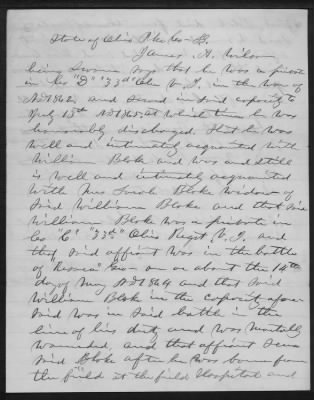 State of Ohio Pike Co S.
James A. Wilson
being Sworne says that he was a private
in Co "D" "33d" Ohio V. I. in the war of
AD 1862, and served in said capacity to
July 13th AD 1865, at which time he was
honorably discharged, that he was
well and intimately acquainted with
William Bloke and was and still
is well and intimately acquainted
with Mrs Sarah Bloke widow of
Said William Bloke and that Said
William Bloke was a private in
Co "C" "33d" Ohio Regt V. I. and
that said affiant was in the battle
of "Resaca" Ga on or about the 14th
day of May AD 1864 and that Said
William Bloke in the capacity afore
said was in said battle in the
line of his duty and was mortally
wounded, and that affiant Seen
Said Bloke after he was borne from
the field at the field Hospital and